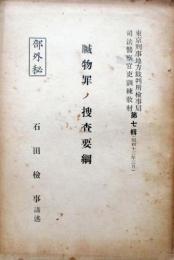 東京刑事地方裁判所検事局
司法警察官吏訓練教材第七輯
贓物罪ノ捜査要綱
部外秘
石田検事講述